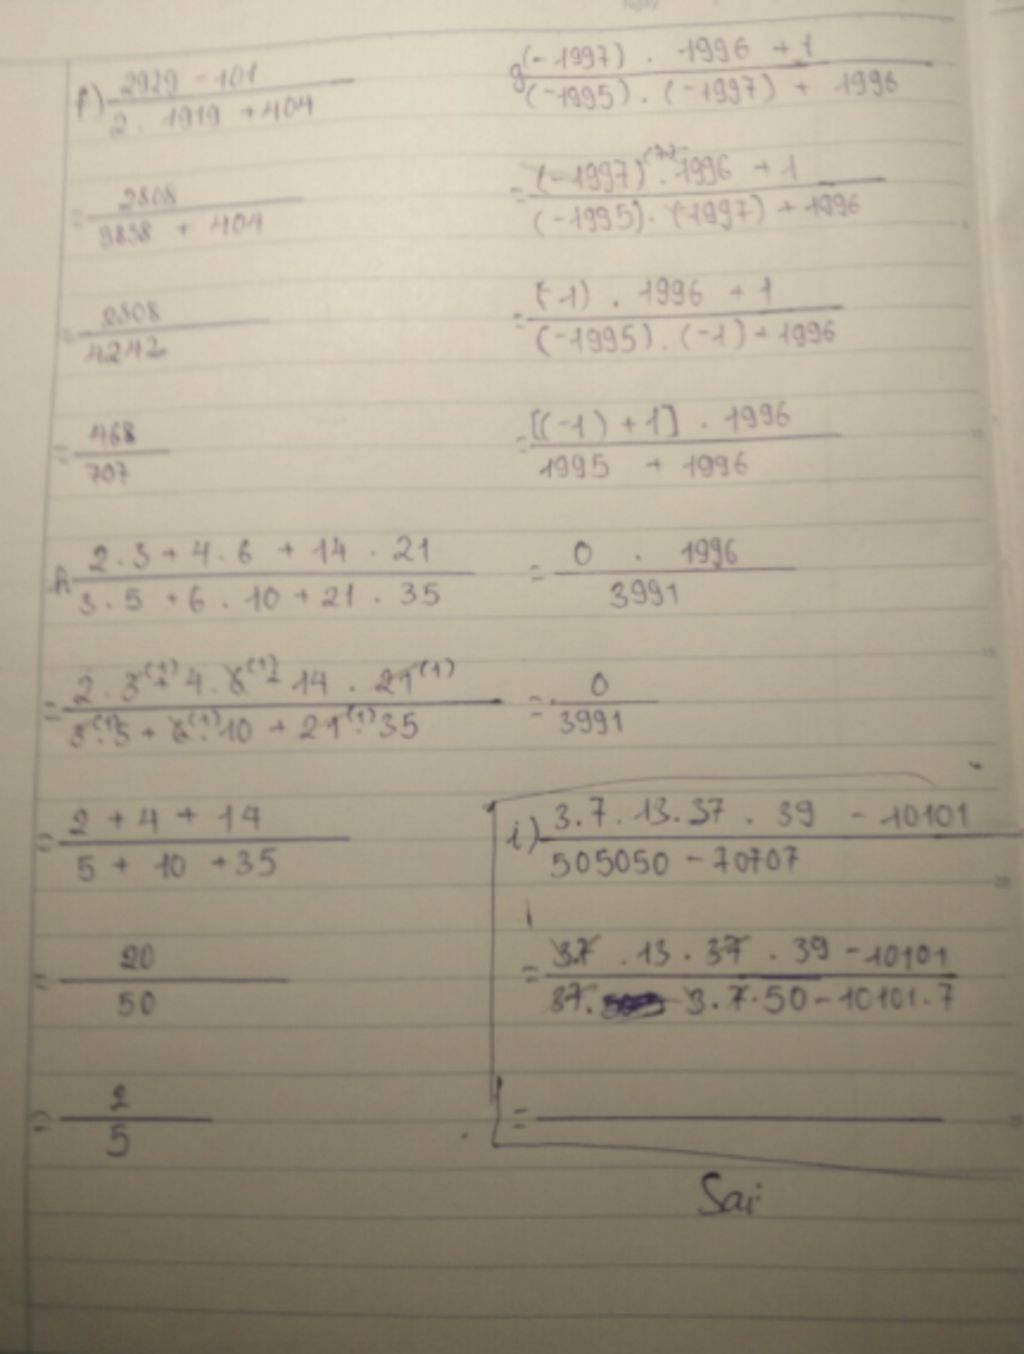 f) 2929 - 101 / 2 . 1919 + 404
= 2808 / 3838 + 404
= 2808 / 4242
= 468 / 707
h 2 . 3 + 4 . 6 + 14 . 21 / 3 . 5 + 6 . 10 + 21 . 35
= 2 . 3(1) + 4 . 6(1) + 14 . 21(1) / 3(1) . 5 + 6(1) . 10 + 21(1) . 35
= 2 + 4 + 14 / 5 + 10 + 35
= 20 / 50
= 2 / 5
g (-1997) . 1996 + 1 / (-1995) . (-1997) + 1996
= (-1997) . 1996 + 1 / (-1995) . (-1997) + 1996
= (-1) . 1996 + 1 / (-1995) . (-1) + 1996
= [(-1) + 1] . 1996 / 1995 + 1996
= 0 . 1996 / 3991
= 0 / 3991
i) 3.7.13.37 . 39 - 10101 / 505050 - 70707
= 3.7 . 13 . 37 . 39 - 10101 / 37. 3.7.50 - 10101.7
=
Sai